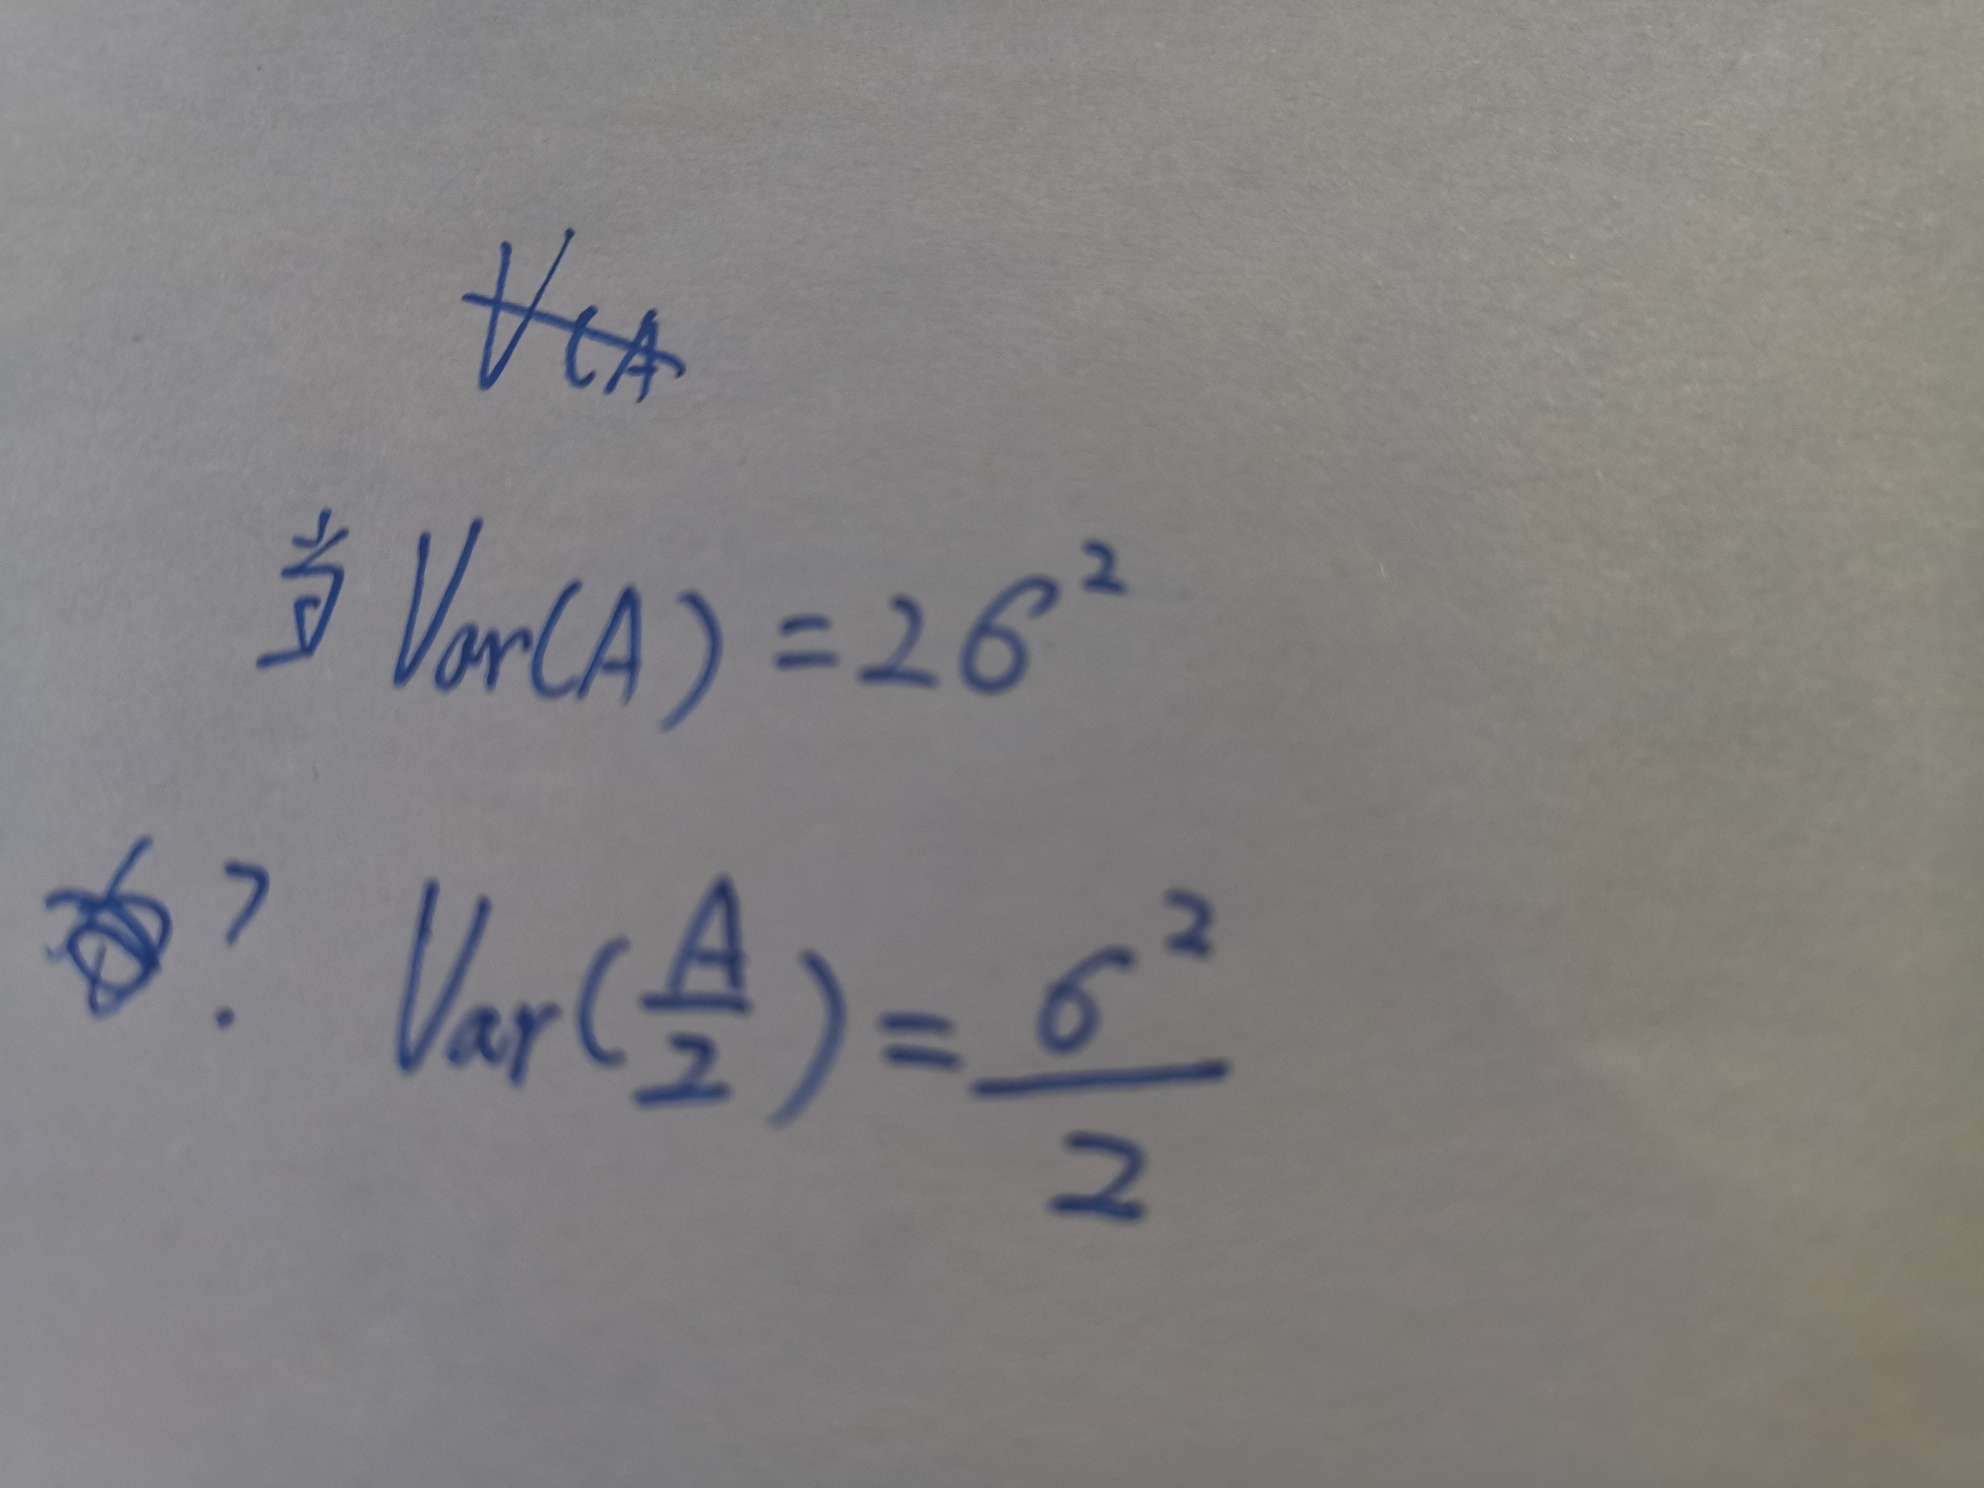 V(A
当 Var(A) = 2σ²
? Var(A/2) = σ²/2